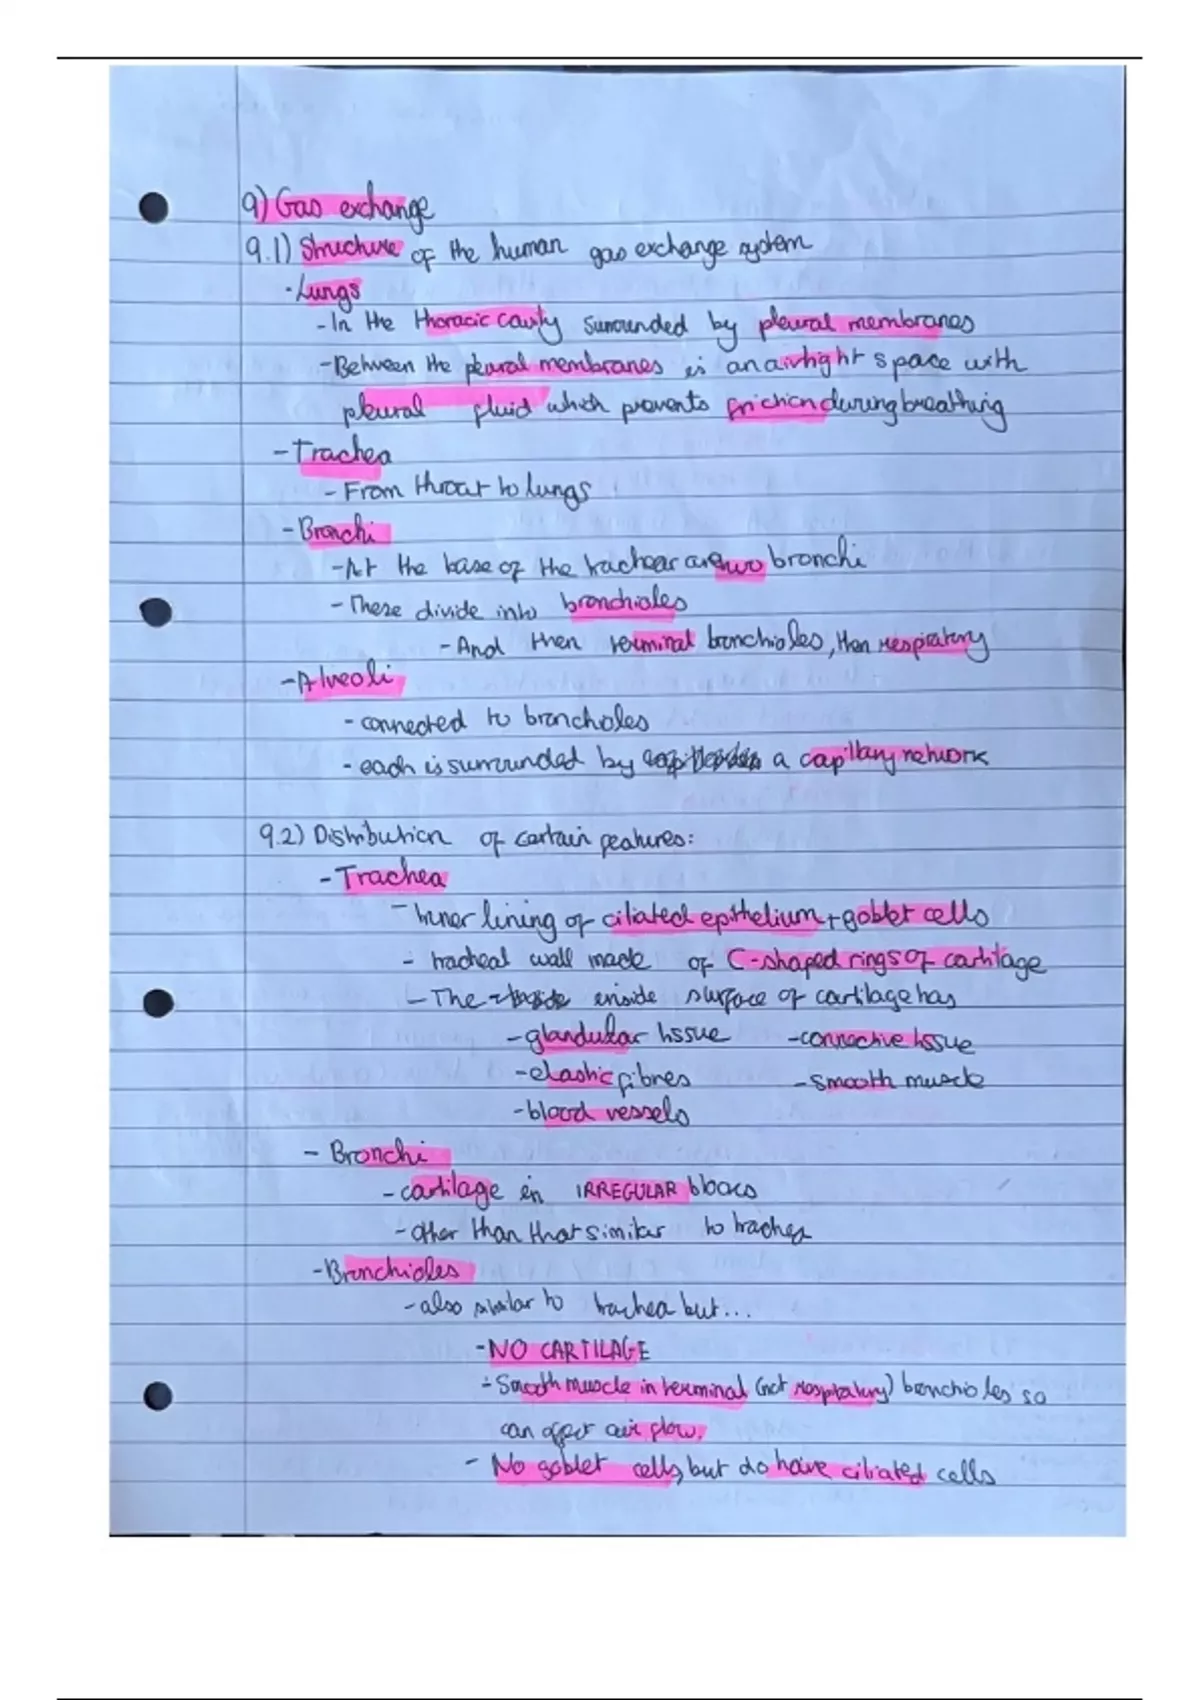 9) Gas exchange
9.1) Structure of the human gas exchange system
· Lungs
- In the thoracic cavity surrounded by pleural membranes
- Between the pleural membranes is an airtight space with
pleural fluid which prevents friction during breathing
- Trachea
- From throat to lungs
- Bronchi
- At the base of the trachea are two bronchi
- These divide into bronchioles
- And then terminal bronchioles, then respiratory
- Alveoli
- connected to bronchioles
- each is surrounded by a capillary network
9.2) Distribution of certain features:
- Trachea
- Inner lining of ciliated epithelium + goblet cells
- tracheal wall made of C-shaped rings of cartilage
- The inside surface of cartilage has
- glandular tissue - connective tissue
- elastic fibres - smooth muscle
- blood vessels
- Bronchi
- cartilage in IRREGULAR blocks
- other than that similar to trachea
- Bronchioles
- also similar to trachea but...
- NO CARTILAGE
- Smooth muscle in terminal (not respiratory) bronchioles so
can affect air flow.
- No goblet cells, but do have ciliated cells